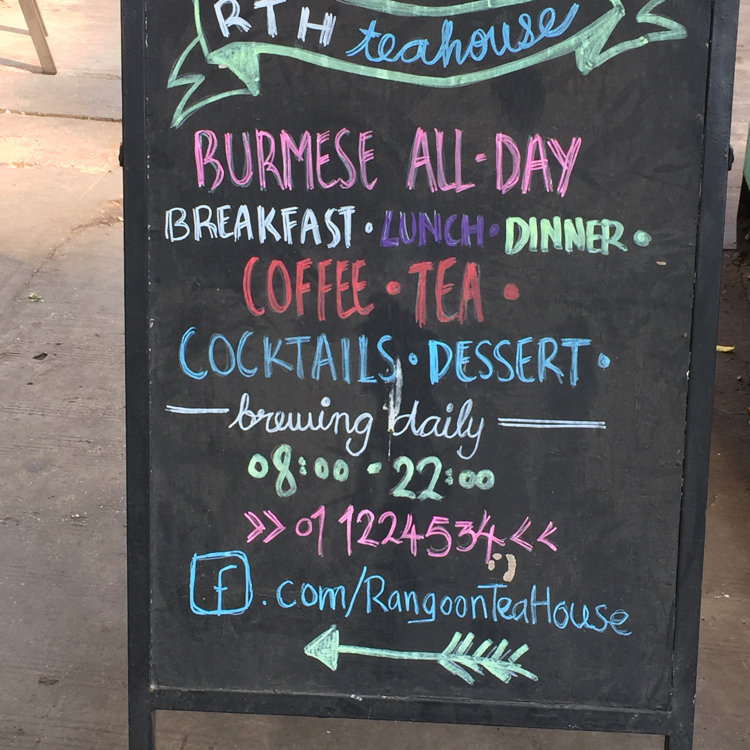 RTH teahouse
BURMESE ALL-DAY
BREAKFAST • LUNCH • DINNER •
COFFEE • TEA •
COCKTAILS • DESSERT •
brewing daily
08:00 - 22:00
>> 01 1224534 <<
f.com/RangoonTeaHouse